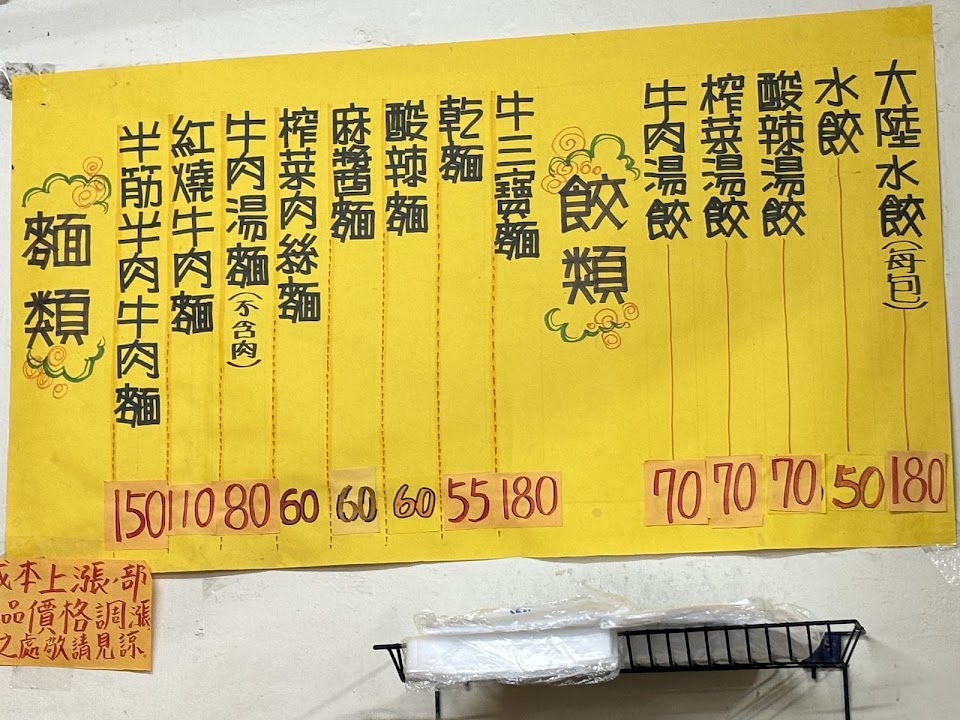 麵類
半筋半肉牛肉麵 150
紅燒牛肉麵 110
牛肉湯麵(不含肉) 80
榨菜肉絲麵 60
麻醬麵 60
酸辣麵 60
乾麵 55
牛三寶麵 180
餃類
牛肉湯餃 70
榨菜湯餃 70
酸辣湯餃 70
水餃 50
大陸水餃(每包) 180
本上漲,部
品價格調漲
之處敬請見諒